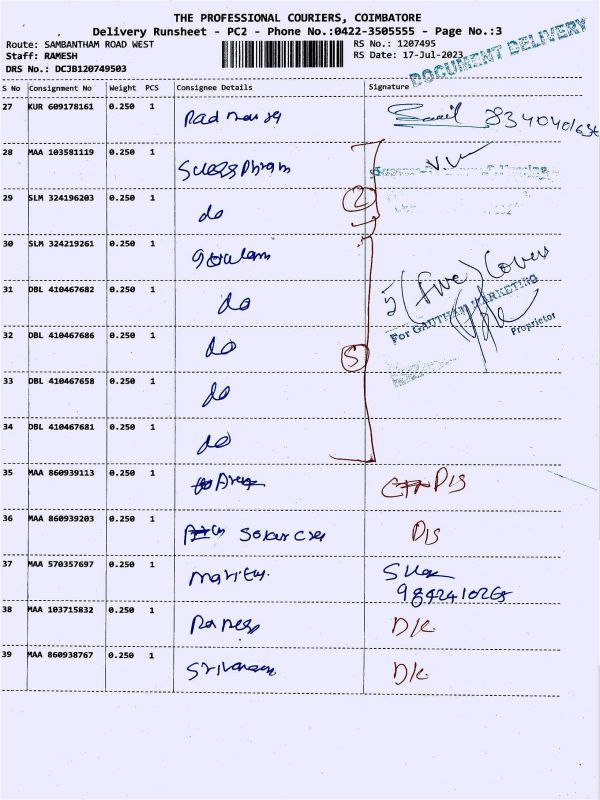 THE PROFESSIONAL COURIERS, COIMBATORE
Delivery Runsheet - PC2 - Phone No.:0422-3505555 - Page No.:3
Route: SAMBANTHAM ROAD WEST RS No.: 1207495
Staff: RAMESH RS Date: 17-Jul-2023
DRS No.: DCJB120749503
DOCUMENT DELIVERY
S No Consignment No Weight PCS Consignee Details Signature
27 KUR 609178161 0.250 1
28 MAA 103581119 0.250 1
29 SLM 324196203 0.250 1 do 2
30 SLM 324219261 0.250 1
31 DBL 410467682 0.250 1 do 5 (five) Covers
For GAUTHAM MARKETING
Proprietor
32 DBL 410467686 0.250 1 do 5
33 DBL 410467658 0.250 1 do
34 DBL 410467681 0.250 1 do
35 MAA 860939113 0.250 1 D/S
36 MAA 860939203 0.250 1 D/S
37 MAA 570357697 0.250 1
38 MAA 103715832 0.250 1 D/C
39 MAA 860938767 0.250 1 D/C